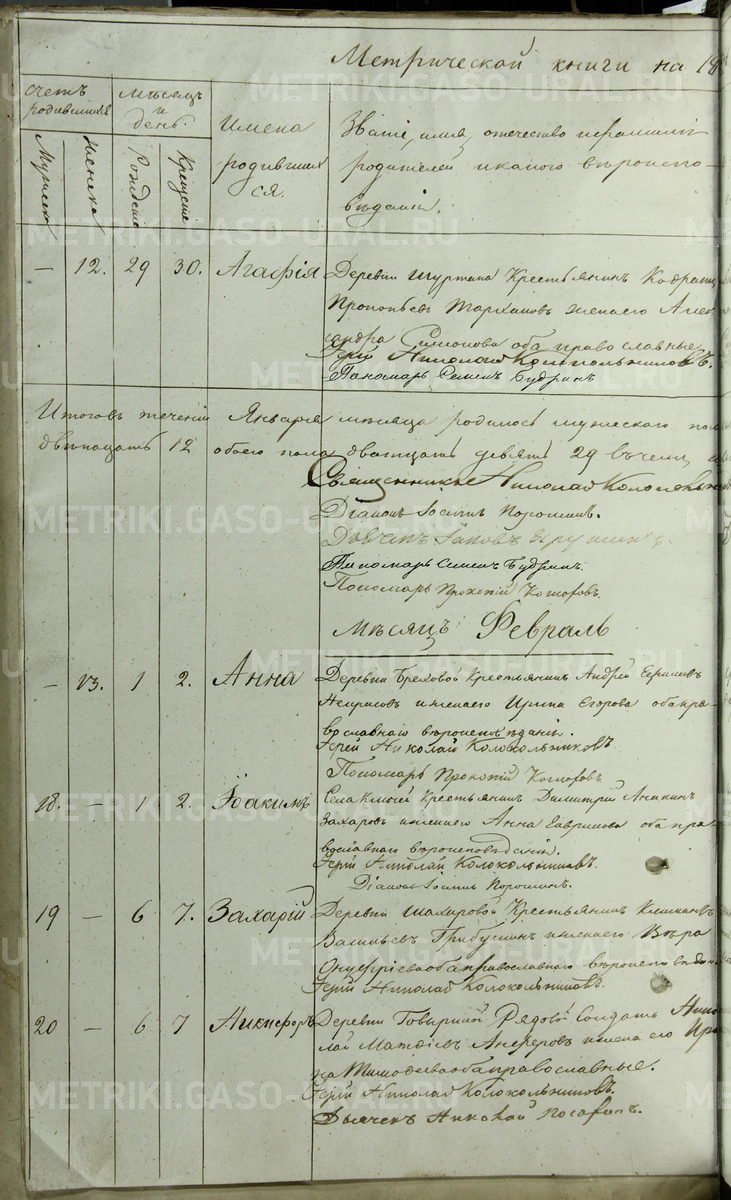 Метрической книги на 18
счетъ родившихся
Мужеска
Женска
мѣсяцъ и день.
Рожденіе
Крещеніе
Имена родившихся.
Званіе, имя, отечество и фамилія
родителей и какого вѣроиспо-
вѣданія.
— 12. 29 30. Агафія
Деревни Шуртана Крестьянинъ Кодратъ
Прокопьевъ Тархановъ жена его Алек-
сандра Симонова оба православные
Іерей Николай Колокольниковъ.
Пономарь Семенъ Будринъ
Итого въ теченіи Января мѣсяца родилось мужескаго пола
двѣнацать 12 обоего пола дватцать девять 29 въ чемъ и
Священникъ Николай Колокольн
Діаконъ Іосипъ Порошинъ.
Дьячекъ Іаковъ
Пономарь Семенъ Будринъ.
Пономарь Прокопій Которовъ.
Мѣсяцъ Февраль
— 13. 1 2. Анна
Деревни Бреховой Крестьянинъ Андрей Ефимовъ
Некрасовъ и жена его Ирина Егорова оба пра-
вославнаго вѣроисповѣданія.
Іерей Николай Колокольниковъ.
Пономарь Прокопій Которовъ
18. — 1 2. Іоакимъ
Села Ключей Крестьянинъ Димитрій Ананинъ
Захаровъ и жена его Анна Гаврилова оба пра-
вославнаго вѣроисповѣданія.
Іерей Николай Колокольниковъ.
Діаконъ Іосипъ Порошинъ.
19 — 6 7. Захарій
Деревни Шахаровой Крестьянинъ
Васильевъ Грибушинъ и жена его Вѣра
Онуфріева оба православнаго вѣроисповѣдан
Іерей Николай Колокольниковъ.
20 — 6 7 Никифоръ
Деревни Рядовой Солдатъ Нико-
лай Матѳіевъ Анферовъ и жена его Ири-
на Тимофеева оба православные.
Іерей Николай Колокольниковъ.
Дьячекъ Николай
METRIKI.GASO-URAL.RU